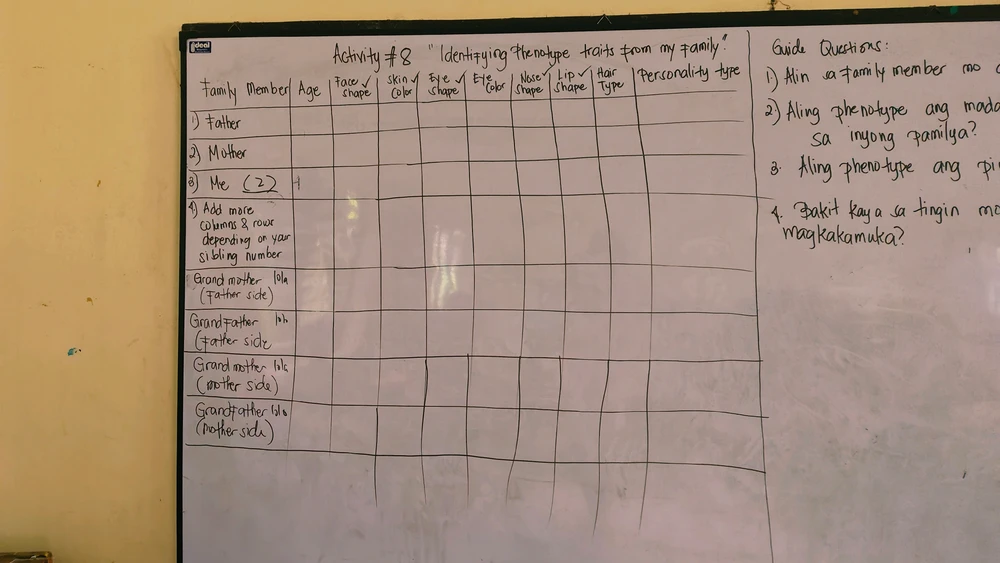 ideal
Activity #8 "Identifying Phenotype traits from my Family."
Family Member
Age
Face ✓
shape
Skin ✓
Color
Eye ✓
shape
Eye
Color
Nose ✓
shape
Lip ✓
shape
Hair
Type
Personality type
1) Father
2) Mother
3) Me (2)
4) Add more
columns & rows
depending on your
sibling number
Grand mother lola
(Father side)
Grand Father lolo
(Father side
Grand mother lola
(mother side)
GrandFather lolo
(mother side)
Guide Questions:
1) Alin sa family member mo
2) Aling phenotype ang mada
sa inyong pamilya?
3. Aling phenotype ang pi
4. Bakit kaya sa tingin mo
magkakamuka?